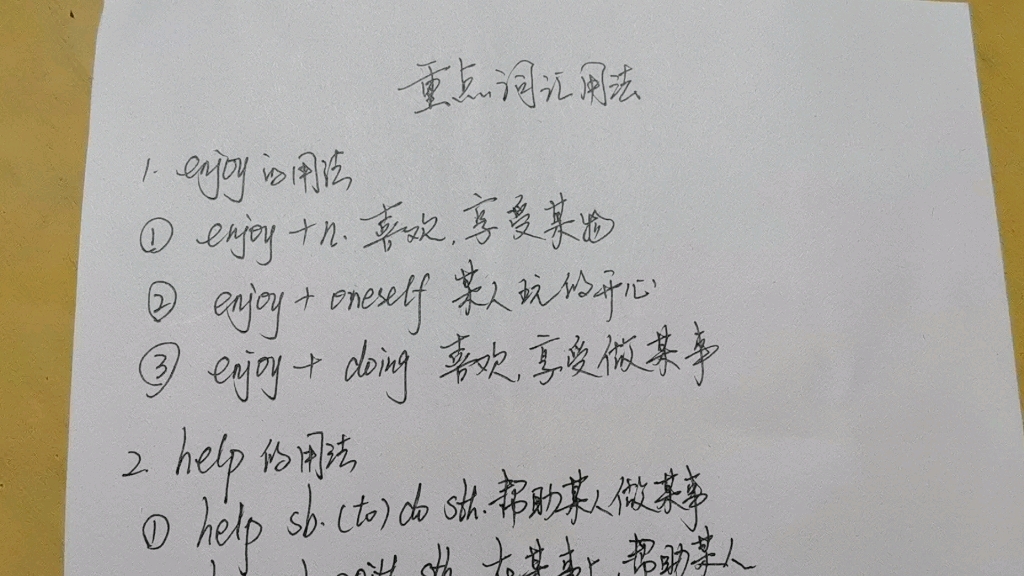 重点词汇用法
1. enjoy的用法
① enjoy +n. 喜欢,享受某物
② enjoy + oneself 某人玩的开心
③ enjoy + doing 喜欢,享受做某事
2. help的用法
① help sb. (to) do sth. 帮助某人做某事
with sth. 在某事上,帮助某人